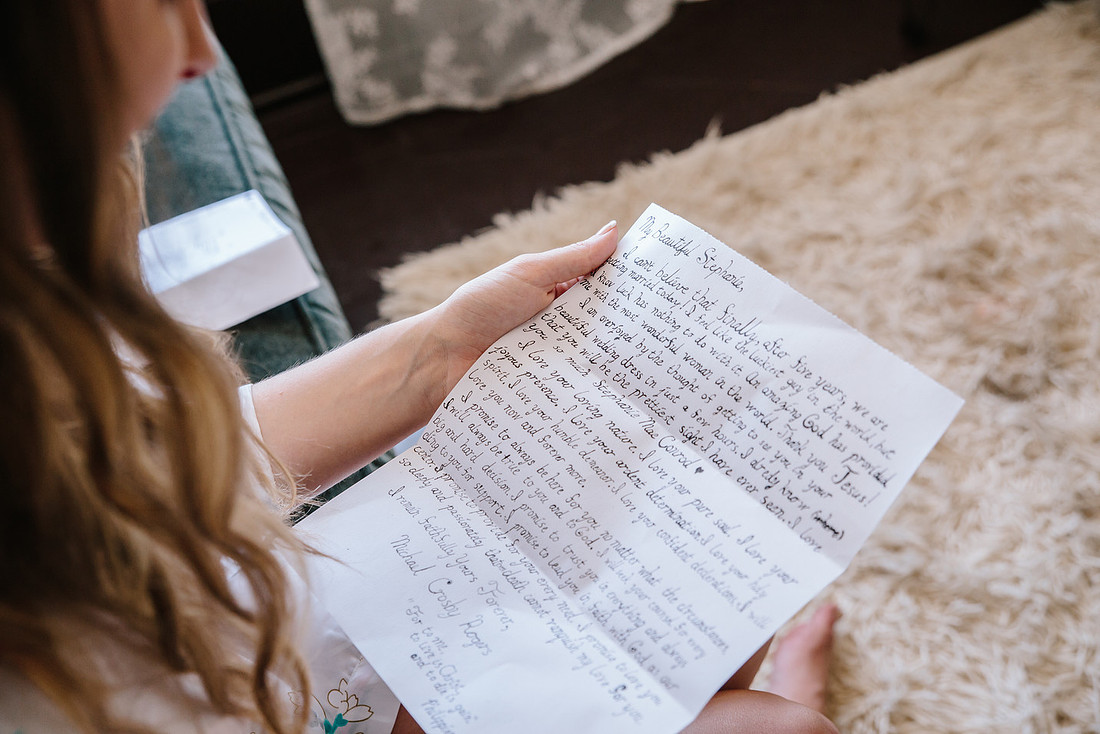 My Beautiful Stephanie,
I can't believe that finally, after five years, we are
getting married today! I feel like the luckiest guy in the world but
I know luck has nothing to do with it. Our amazing God has provided
me with the most wonderful woman in the world. Thank you, Jesus!
I am overjoyed by the thought of getting to see you in your
beautiful wedding dress in just a few hours. I already know
that you will be the prettiest sight I have ever seen. I love
you so much Stephanie Mae
I love your loving nature. I love your pure soul. I love your
joyous presence. I love your ardent determination. I love your
spirit. I love your humble demeanor. I love your confident I will
love you now and forever more.
I promise to always be here for you, no matter what the circumstances.
I will always be true to you and to God. I
big and hard decision. I promise to trust you in everything and always
to you for support. I promise to lead you in faith with God as our
center. I promise to provide for your every need. I promise to love you
so deeply and passionately that death cannot my love for you.
I am Faithfully Yours Forever,
Michael Crosby Rogers
"For to me,
to live is Christ
and to die is gain"